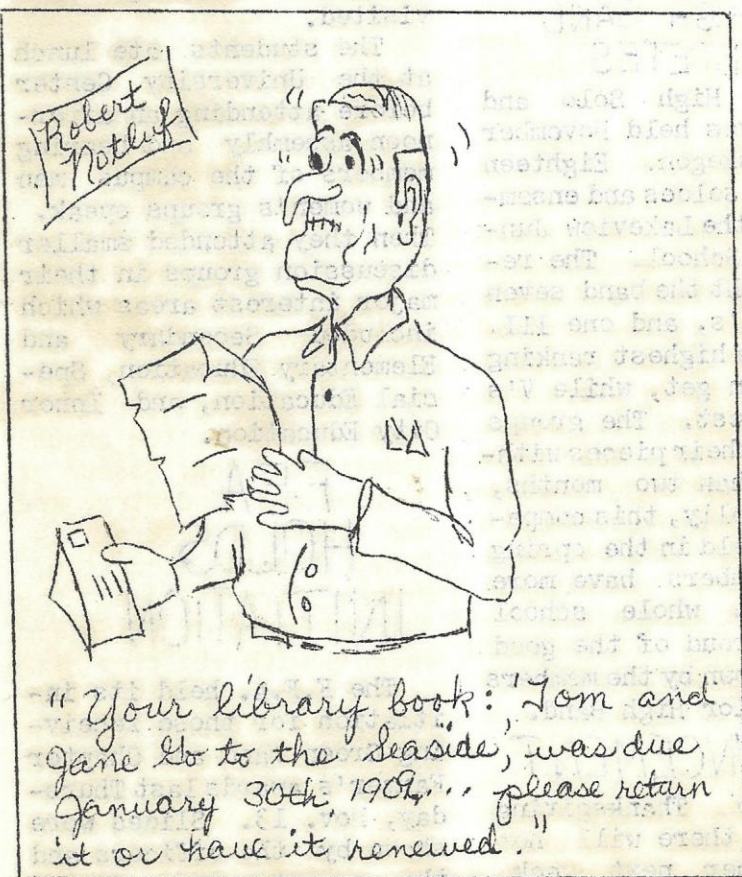 Robert
Notluf
"Your library book: 'Tom and
Jane Go to the Seaside', was due
January 30th, 1909,... please return
it or have it renewed."